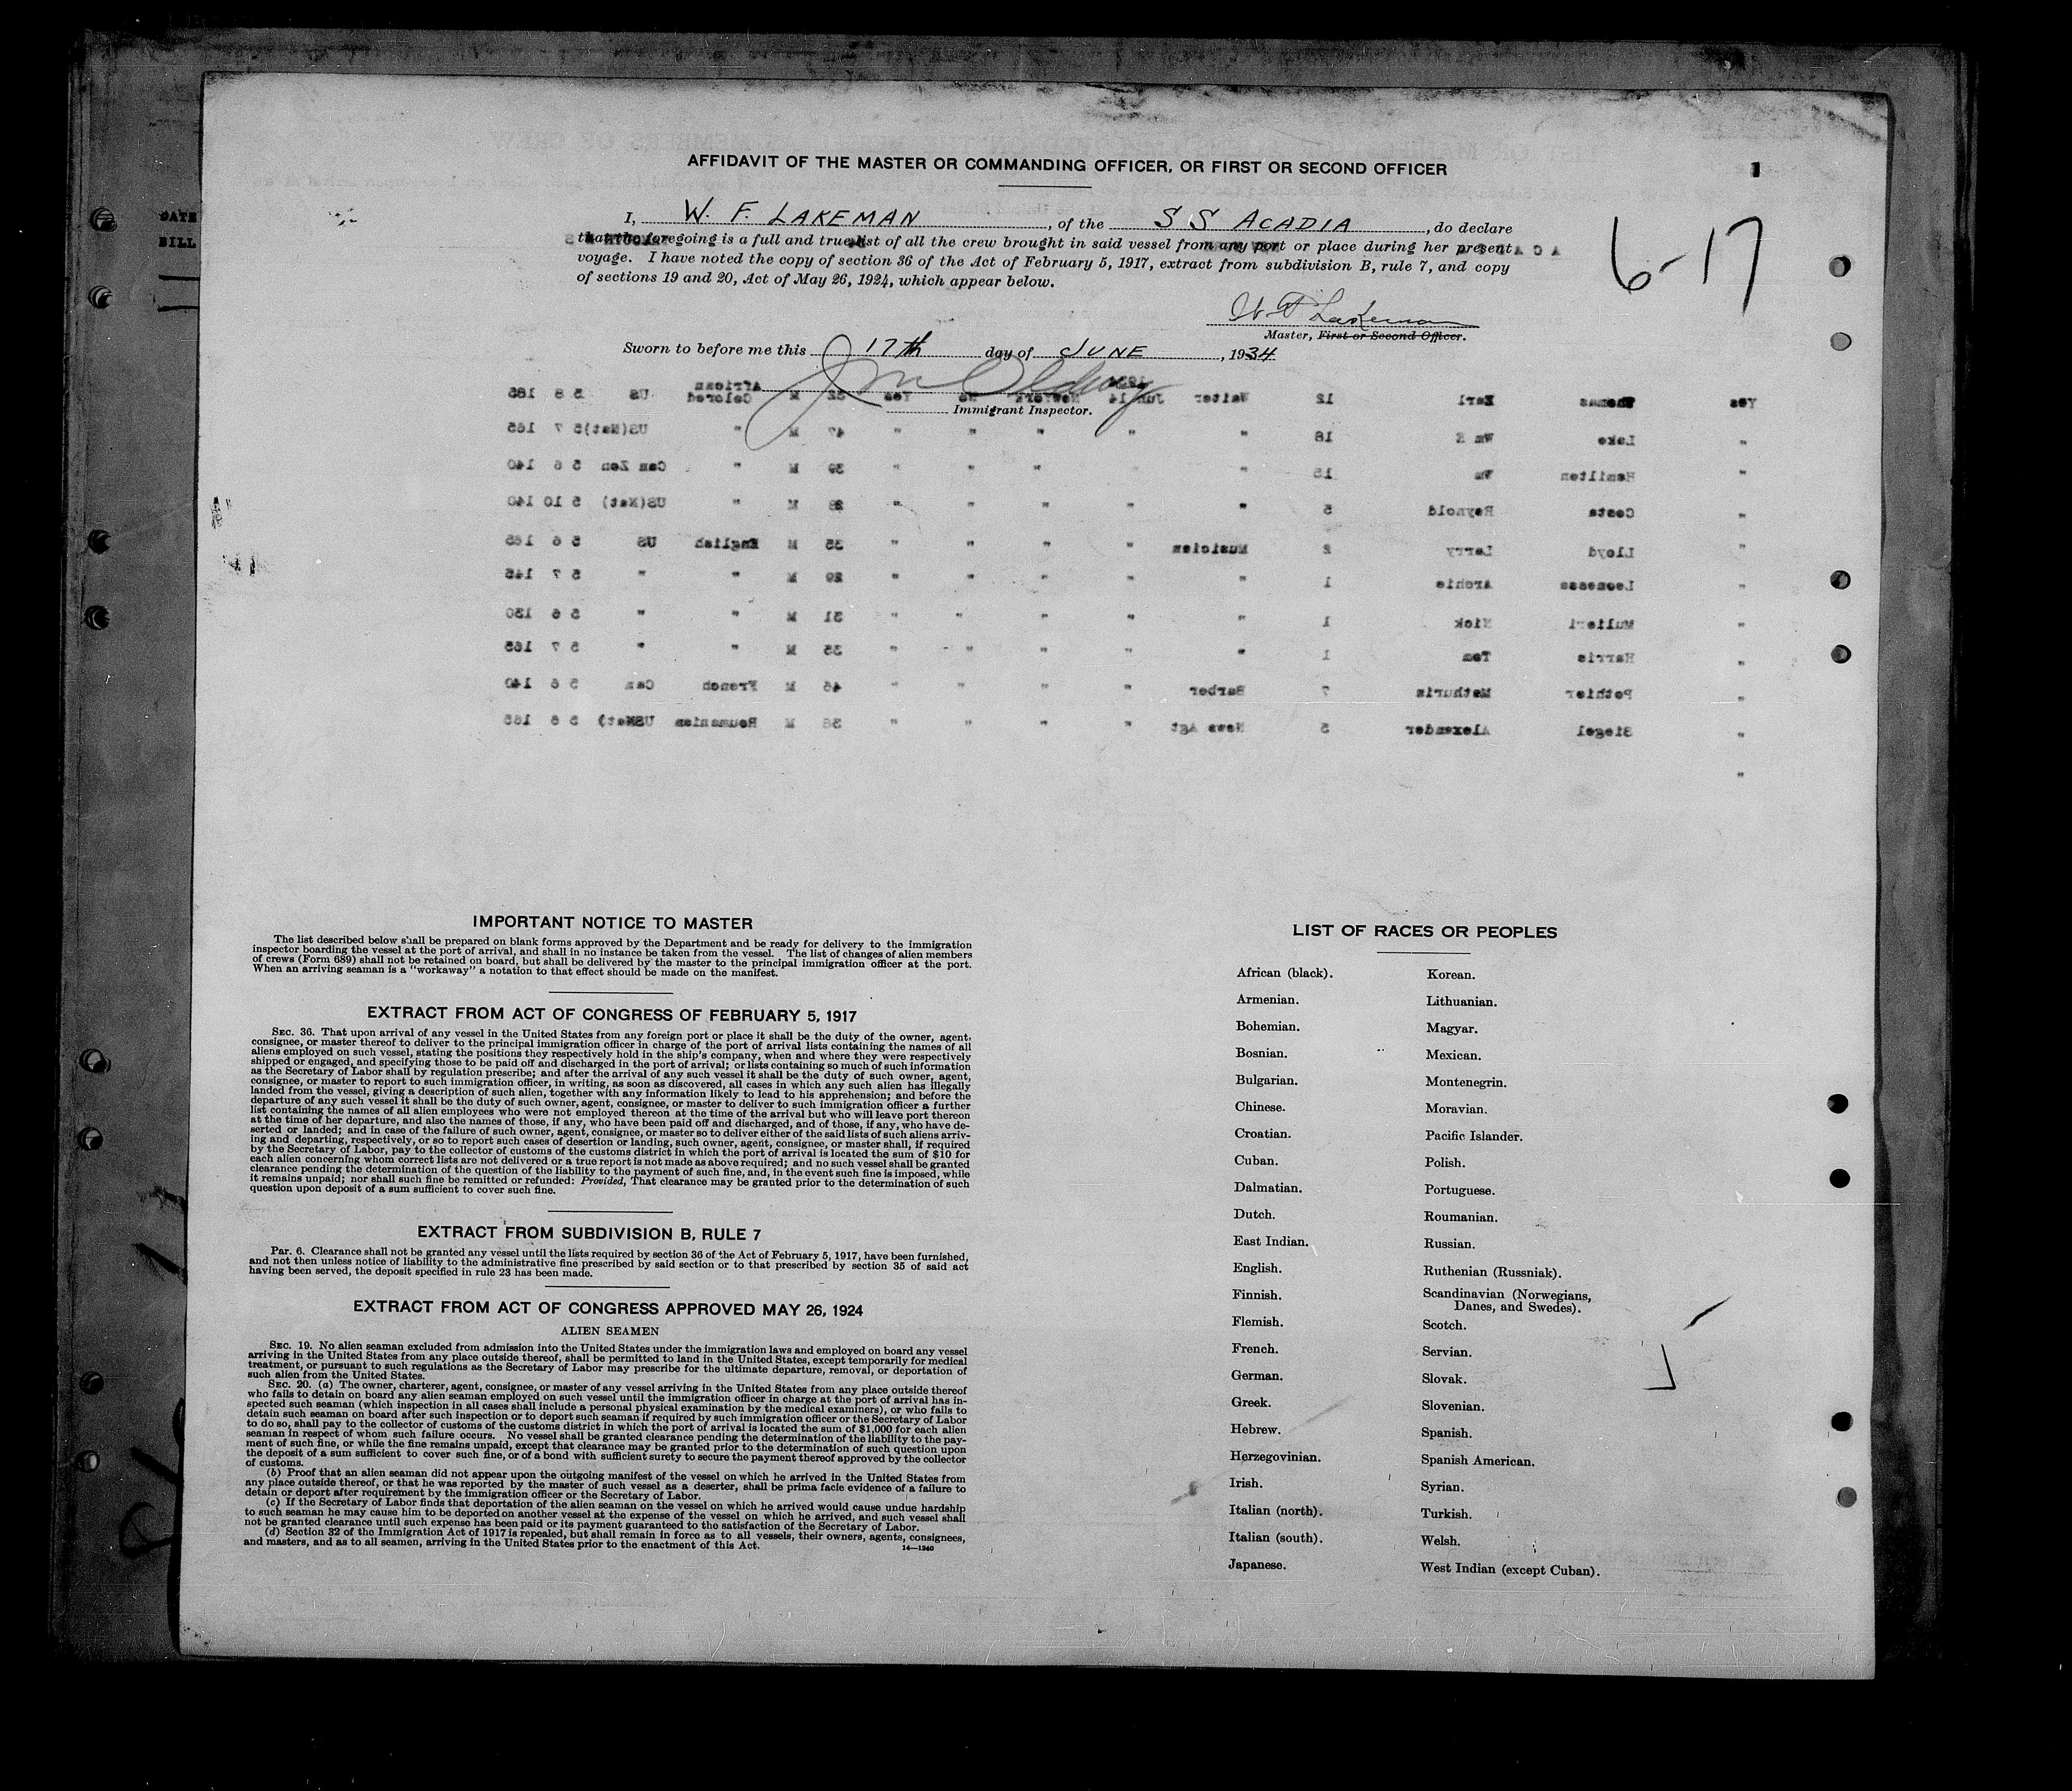 DATE
BILL
AFFIDAVIT OF THE MASTER OR COMMANDING OFFICER, OR FIRST OR SECOND OFFICER
I, W. F. LAKEMAN, of the S S ACADIA, do declare
that the foregoing is a full and true list of all the crew brought in said vessel from any port or place during her present
voyage. I have noted the copy of section 36 of the Act of February 5, 1917, extract from subdivision B, rule 7, and copy
of sections 19 and 20, Act of May 26, 1924, which appear below.
6-17
W F Lakeman
Master, First or Second Officer.
Sworn to before me this 17th day of JUNE, 1934
Immigrant Inspector.
Yes Thomas Earl 12 Waiter Jun 14 NewYork No Yes 32 M African Colored US 5 8 185
" Lake Wm E 18 " " " " " 47 M " US(Nat) 5 7 165
" Hamilton Wm 15 " " " " " 39 M " Can Zen 5 6 140
" Costa Reynold 5 " " " " " 28 M " US(Nat) 5 10 140
" Lloyd Larry 2 Musician " " " " 35 M English US 5 6 165
" Archie 1 " " " " " 29 M " " 5 7 145
" Mulieri Nick 1 " " " " " 31 M " " 5 6 130
" Harris Tom 1 " " " " " 35 M " " 5 7 165
" Pothier Mathurin 7 Barber " " " " 45 M French Can 5 6 140
" Siegel Alexander 5 News Agt " " " " 36 M Roumanian USNat) 5 6 165
"
IMPORTANT NOTICE TO MASTER
The list described below shall be prepared on blank forms approved by the Department and be ready for delivery to the immigration
inspector boarding the vessel at the port of arrival, and shall in no instance be taken from the vessel. The list of changes of alien members
of crews (Form 689) shall not be retained on board, but shall be delivered by the master to the principal immigration officer at the port.
When an arriving seaman is a "workaway" a notation to that effect should be made on the manifest.
EXTRACT FROM ACT OF CONGRESS OF FEBRUARY 5, 1917
SEC. 36. That upon arrival of any vessel in the United States from any foreign port or place it shall be the duty of the owner, agent,
consignee, or master thereof to deliver to the principal immigration officer in charge of the port of arrival lists containing the names of all
aliens employed on such vessel, stating the positions they respectively hold in the ship's company, when and where they were respectively
shipped or engaged, and specifying those to be paid off and discharged in the port of arrival; or lists containing so much of such information
as the Secretary of Labor shall by regulation prescribe; and after the arrival of any such vessel it shall be the duty of such owner, agent,
consignee, or master to report to such immigration officer, in writing, as soon as discovered, all cases in which any such alien has illegally
landed from the vessel, giving a description of such alien, together with any information likely to lead to his apprehension; and before the
departure of any such vessel it shall be the duty of such owner, agent, consignee, or master to deliver to such immigration officer a further
list containing the names of all alien employees who were not employed thereon at the time of the arrival but who will leave port thereon
at the time of her departure, and also the names of those, if any, who have been paid off and discharged, and of those, if any, who have de-
serted or landed; and in case of the failure of such owner, agent, consignee, or master so to deliver either of the said lists of such aliens arriv-
ing and departing, respectively, or so to report such cases of desertion or landing, such owner, agent, consignee, or master shall, if required
by the Secretary of Labor, pay to the collector of customs of the customs district in which the port of arrival is located the sum of $10 for
each alien concerning whom correct lists are not delivered or a true report is not made as above required; and no such vessel shall be granted
clearance pending the determination of the question of the liability to the payment of such fine, and, in the event such fine is imposed, while
it remains unpaid; nor shall such fine be remitted or refunded: Provided, That clearance may be granted prior to the determination of such
question upon deposit of a sum sufficient to cover such fine.
EXTRACT FROM SUBDIVISION B, RULE 7
Par. 6. Clearance shall not be granted any vessel until the lists required by section 36 of the Act of February 5, 1917, have been furnished,
and not then unless notice of liability to the administrative fine prescribed by said section or to that prescribed by section 35 of said act
having been served, the deposit specified in rule 23 has been made.
EXTRACT FROM ACT OF CONGRESS APPROVED MAY 26, 1924
ALIEN SEAMEN
SEC. 19. No alien seaman excluded from admission into the United States under the immigration laws and employed on board any vessel
arriving in the United States from any place outside thereof, shall be permitted to land in the United States, except temporarily for medical
treatment, or pursuant to such regulations as the Secretary of Labor may prescribe for the ultimate departure, removal, or deportation of
such alien from the United States.
SEC. 20. (a) The owner, charterer, agent, consignee, or master of any vessel arriving in the United States from any place outside thereof
who fails to detain on board any alien seaman employed on such vessel until the immigration officer in charge at the port of arrival has in-
spected such seaman (which inspection in all cases shall include a personal physical examination by the medical examiners), or who fails to
detain such seaman on board after such inspection or to deport such seaman if required by such immigration officer or the Secretary of Labor
to do so, shall pay to the collector of customs of the customs district in which the port of arrival is located the sum of $1,000 for each alien
seaman in respect of whom such failure occurs. No vessel shall be granted clearance pending the determination of the liability to the pay-
ment of such fine, or while the fine remains unpaid, except that clearance may be granted prior to the determination of such question upon
the deposit of a sum sufficient to cover such fine, or of a bond with sufficient surety to secure the payment thereof approved by the collector
of customs.
(b) Proof that an alien seaman did not appear upon the outgoing manifest of the vessel on which he arrived in the United States from
any place outside thereof, or that he was reported by the master of such vessel as a deserter, shall be prima facie evidence of a failure to
detain or deport after requirement by the immigration officer or the Secretary of Labor.
(c) If the Secretary of Labor finds that deportation of the alien seaman on the vessel on which he arrived would cause undue hardship
to such seaman he may cause him to be deported on another vessel at the expense of the vessel on which he arrived, and such vessel shall
not be granted clearance until such expense has been paid or its payment guaranteed to the satisfaction of the Secretary of Labor.
(d) Section 32 of the Immigration Act of 1917 is repealed, but shall remain in force as to all vessels, their owners, agents, consignees,
and masters, and as to all seamen, arriving in the United States prior to the enactment of this Act.
14—1240
LIST OF RACES OR PEOPLES
African (black).
Armenian.
Bohemian.
Bosnian.
Bulgarian.
Chinese.
Croatian.
Cuban.
Dalmatian.
Dutch.
East Indian.
English.
Finnish.
Flemish.
French.
German.
Greek.
Hebrew.
Herzegovinian.
Irish.
Italian (north).
Italian (south).
Japanese.
Korean.
Lithuanian.
Magyar.
Mexican.
Montenegrin.
Moravian.
Pacific Islander.
Polish.
Portuguese.
Roumanian.
Russian.
Ruthenian (Russniak).
Scandinavian (Norwegians,
Danes, and Swedes).
Scotch.
Servian.
Slovak.
Slovenian.
Spanish.
Spanish American.
Syrian.
Turkish.
Welsh.
West Indian (except Cuban).